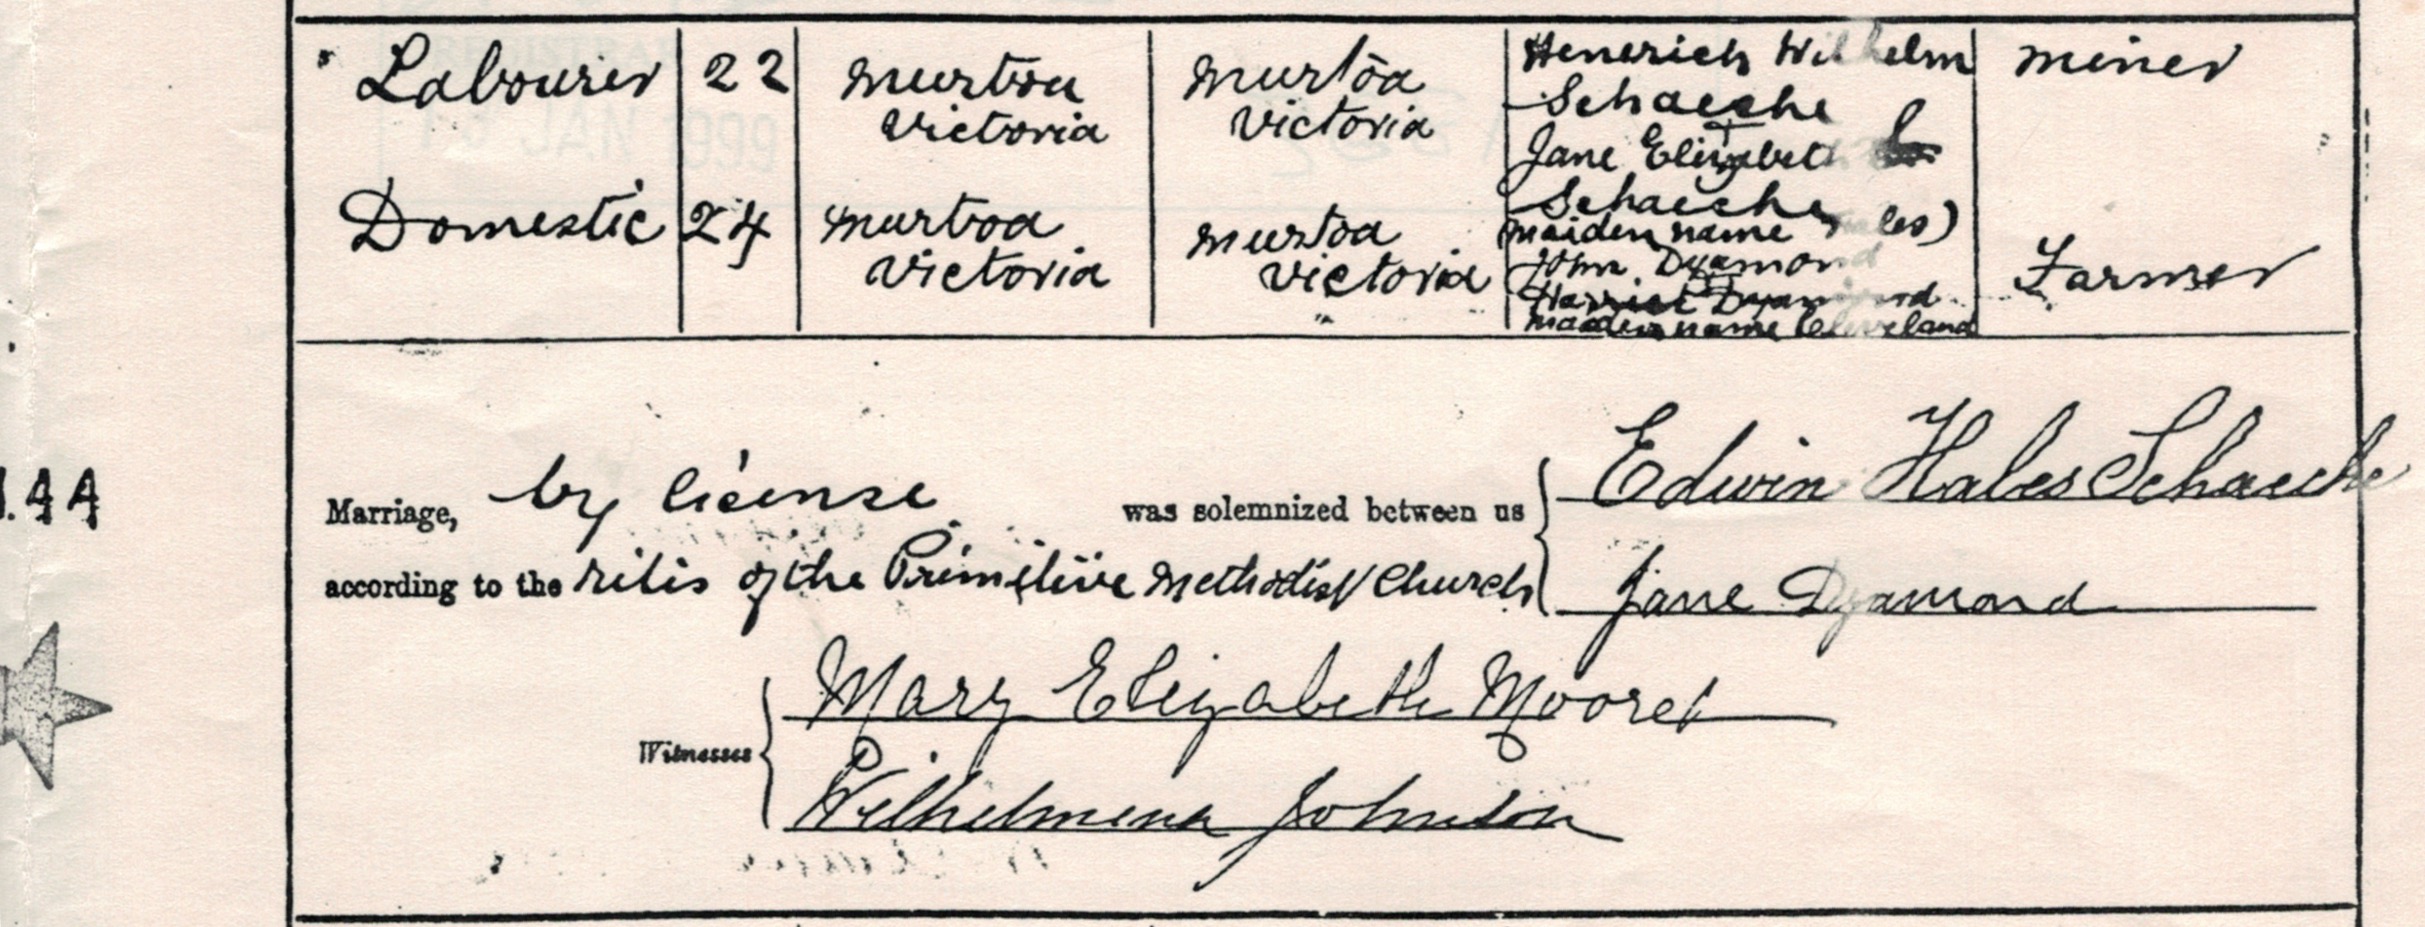 Labourer 22 Murtoa Murtoa Henerich Wilhelm Miner
Victoria Victoria Schaeche
Jane Elizabeth
Schaeche
Domestic 24 Murtoa Murtoa maiden name Hales)
Victoria Victoria John Dyamond Farmer
Harriet Dyamond
maiden name Cleveland
Marriage, by license was solemnized between us Edwin Hales Schaeche
according to the rites of the Primitive Methodist Church Jane Dyamond
44
Mary Elizabeth
Witnesses
Wilhelmena Johnson